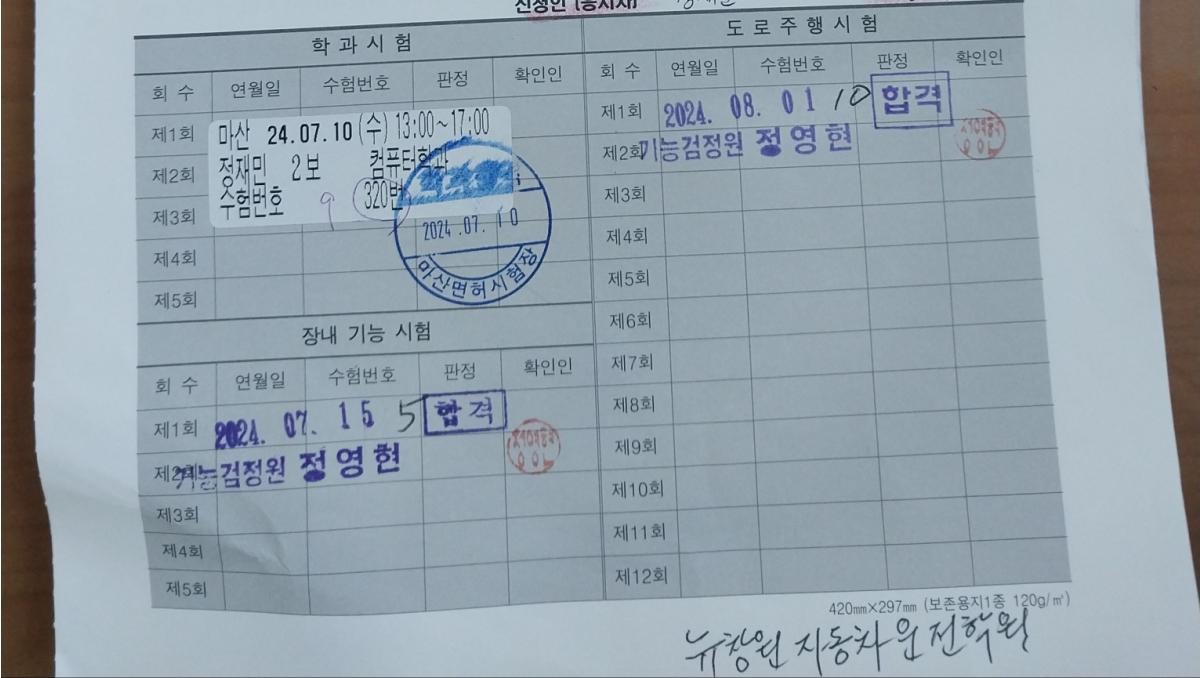 신청인 (응시자)
학과시험
회 수 연월일 수험번호 판정 확인인
제1회
제2회
제3회
제4회
제5회
마산 24.07.10 (수) 13:00~17:00
정재민 2보 컴퓨터학과
수험번호 9 320번
2024.07.10
마산면허시험장
장내 기능 시험
회 수 연월일 수험번호 판정 확인인
제1회 2024. 07. 15 5 합격
제2회 기능검정원 정영현
제3회
제4회
제5회
도로주행시험
회 수 연월일 수험번호 판정 확인인
제1회 2024. 08. 01 10 합격
제2회 기능검정원 정영현
제3회
제4회
제5회
제6회
제7회
제8회
제9회
제10회
제11회
제12회
420㎜×297㎜ (보존용지1종 120g/㎡)
뉴창원 자동차운전학원